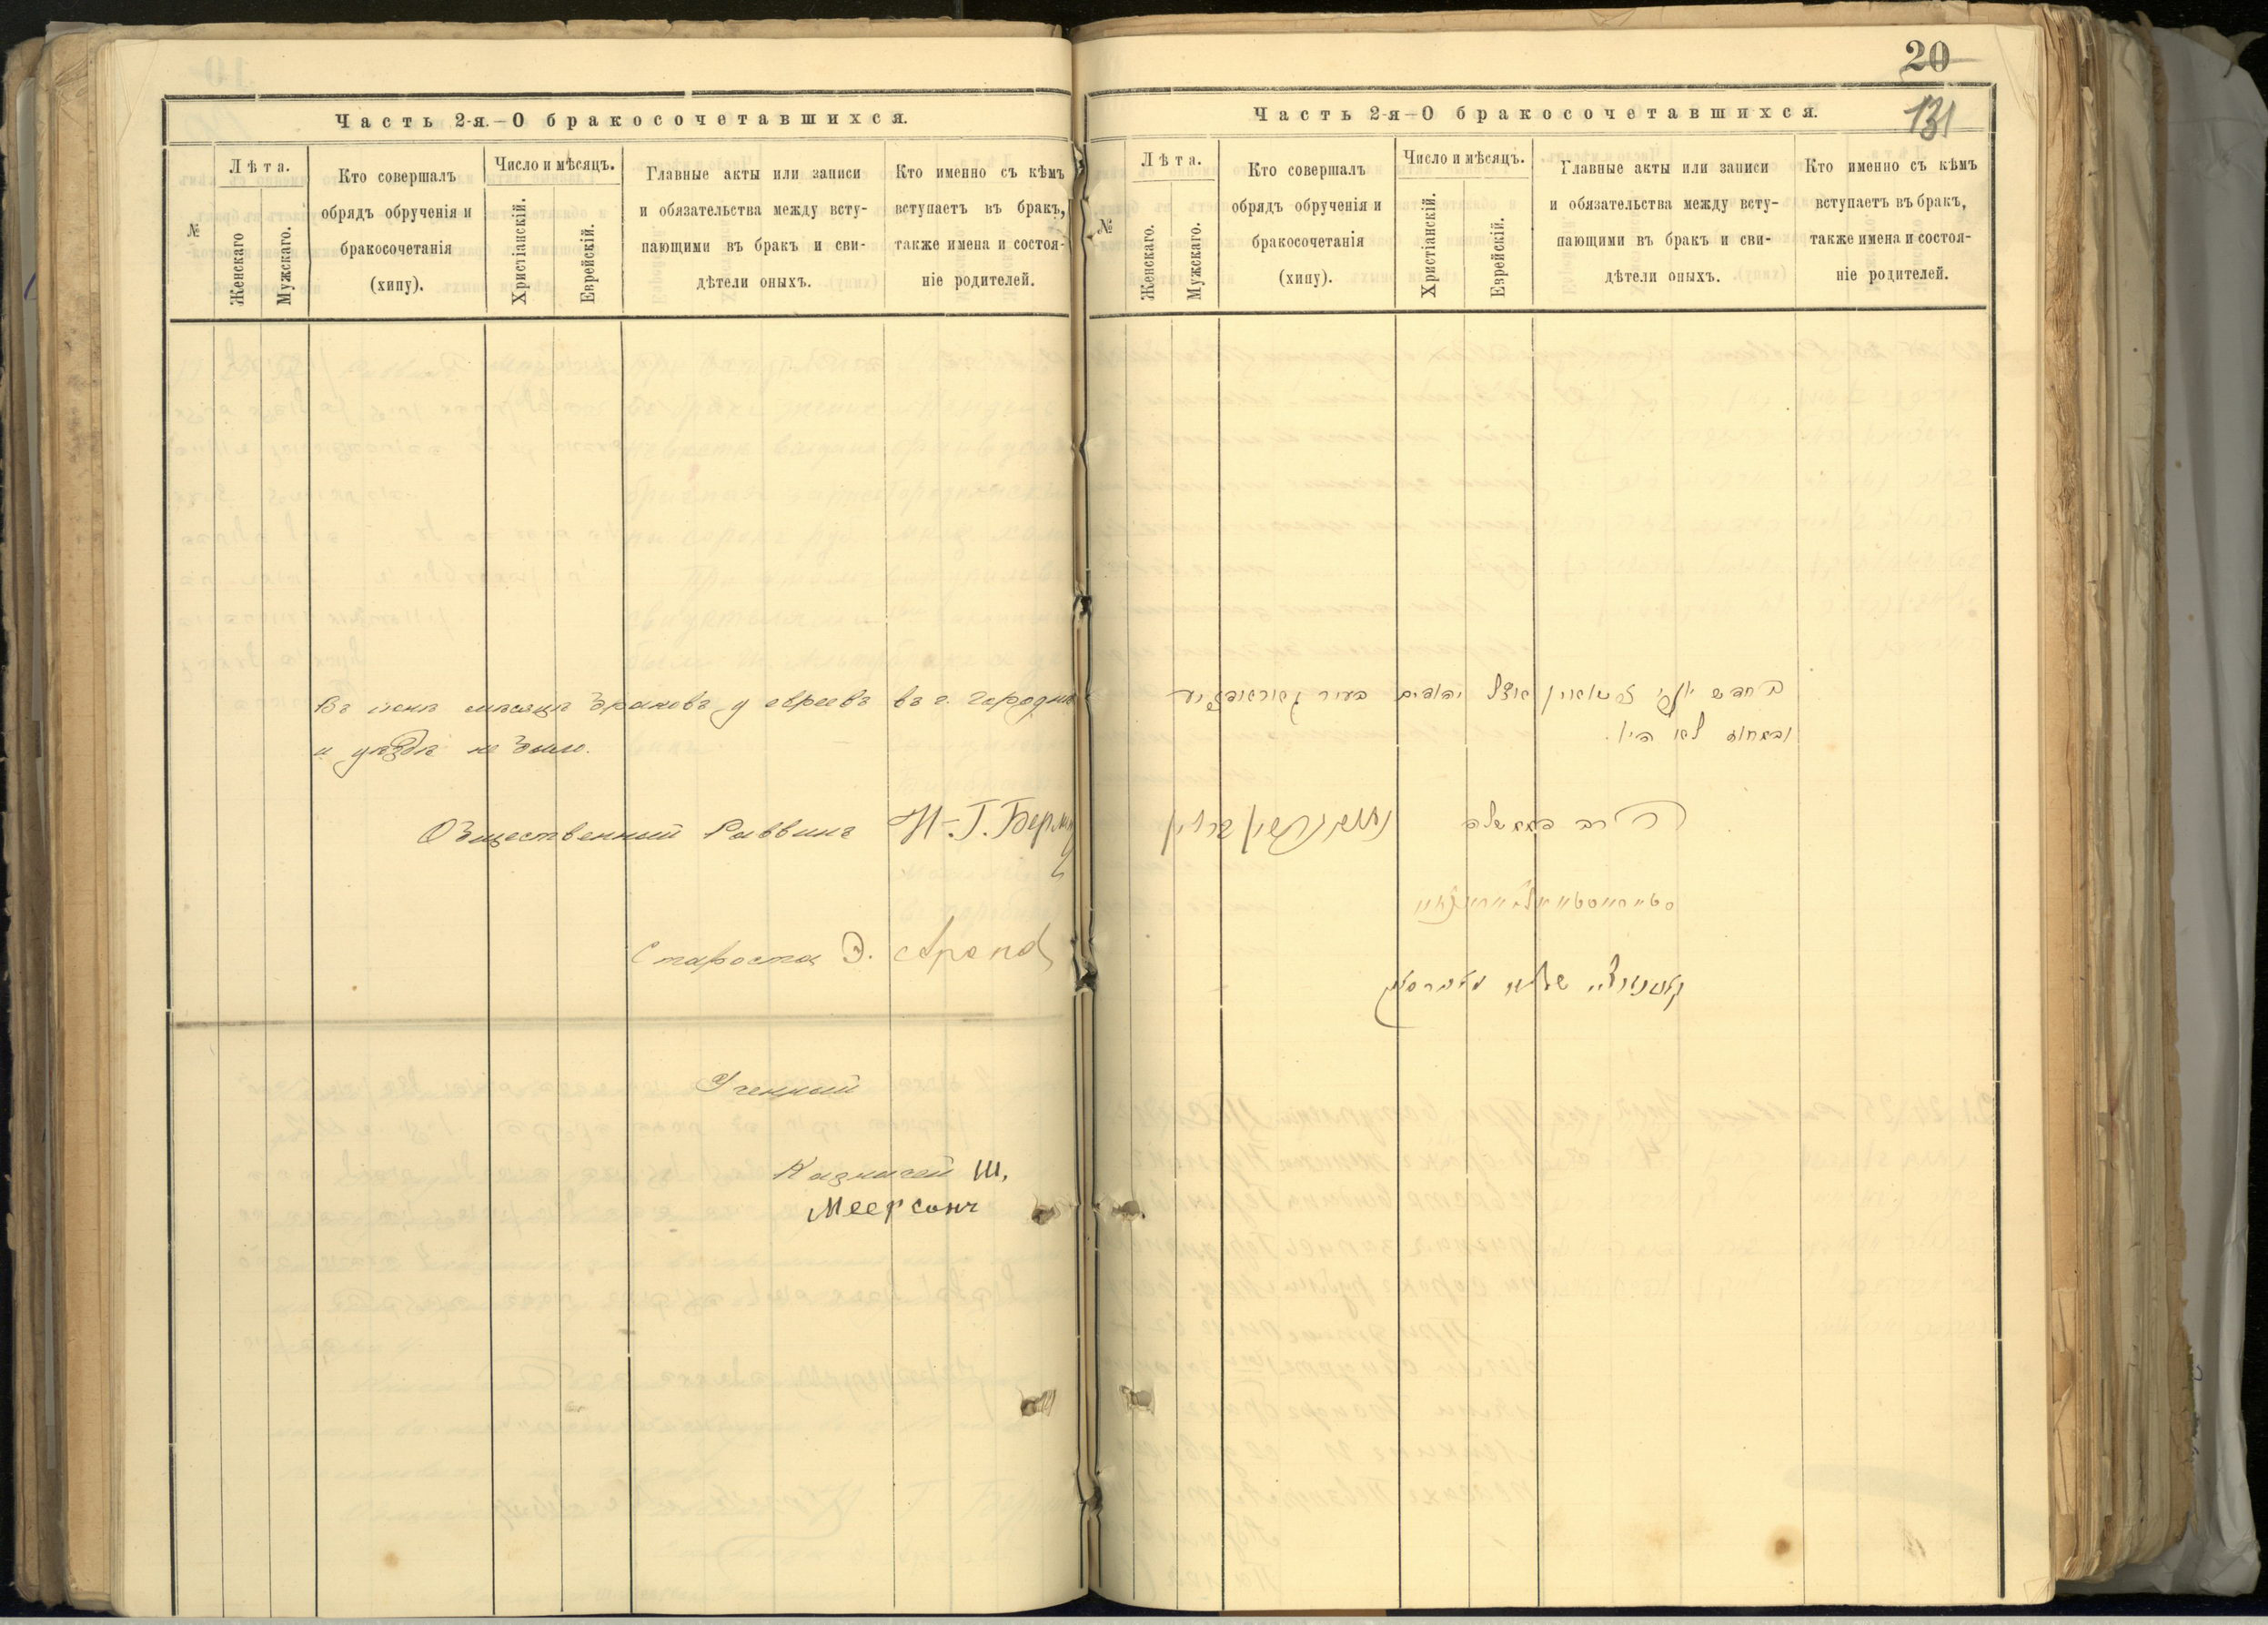 Часть 2-я.—О бракосочетавшихся.
№
Лѣта.
Женскаго
Мужскаго.
Кто совершалъ
обрядъ обрученія и
бракосочетанія
(хипу).
Число и мѣсяцъ.
Христіанскій.
Еврейскій.
Главные акты или записи
и обязательства между всту-
пающими въ бракъ и сви-
дѣтели оныхъ.
Кто именно съ кѣмъ
вступаетъ въ бракъ,
также имена и состоя-
ніе родителей.
Въ мѣсяца браковъ у евреевъ въ г.
и уѣзда не было.
Общественный Раввинъ И-Г. Берман
Староста Э.
Ученый
Казначей Ш.
Меерсонъ
20
131
Часть 2-я—О бракосочетавшихся.
№
Лѣта.
Женскаго.
Мужскаго.
Кто совершалъ
обрядъ обрученія и
бракосочетанія
(хипу).
Число и мѣсяцъ.
Христіанскій.
Еврейскій.
Главные акты или записи
и обязательства между всту-
пающими въ бракъ и сви-
дѣтели оныхъ.
Кто именно съ кѣмъ
вступаетъ въ бракъ,
также имена и состоя-
ніе родителей.
חדש יולי נשואין אצל יהודים בעיר
לא היו.
הרב